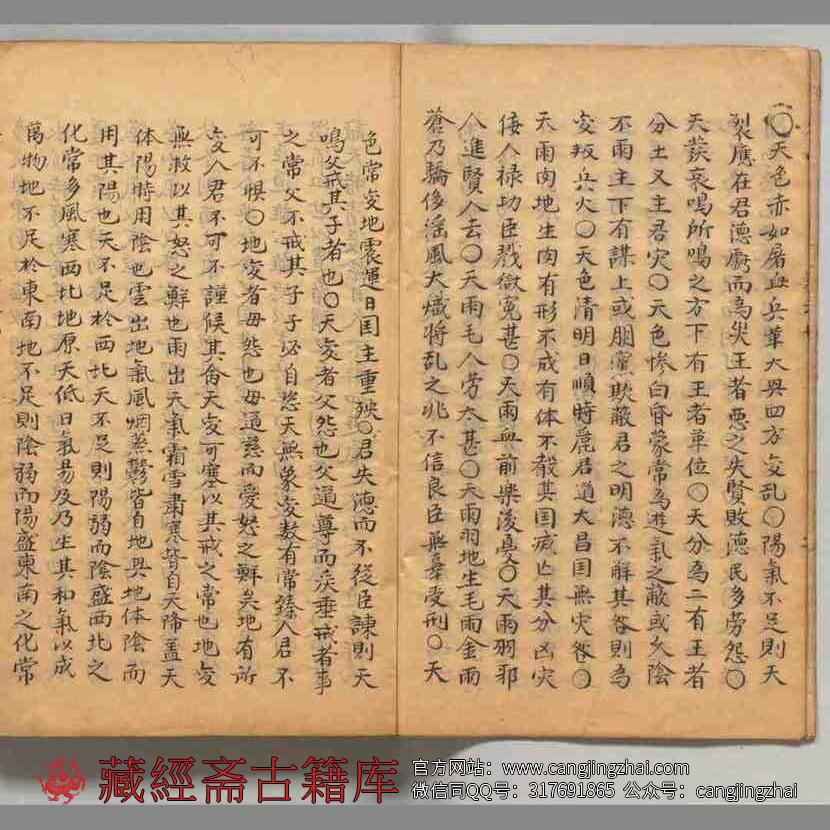 〇天色赤如屠血兵革大興四方変乱〇陽氣不足則天
裂應在君德虧而為災王者惡之失賢敗德民多劳怨〇
天哀鳴所鳴之方下有王者革位〇天分為二有王者
分土又主君灾〇天色惨白昏蒙常為遊氣之蔽或久陰
不雨主下有謀上或朋黨欺蔽君之明德不解其咎則為
変叛兵火〇天色清明日順時麗君道大昌囯無灾咎〇
天雨肉地生肉有形不成有体不載其囯滅亡其分凶灾
佞人禄功臣戮獄冤甚〇天雨血前樂後憂〇天雨羽邪
人進賢人去〇天雨毛人劳太甚〇天雨羽地生毛雨金雨
蒼乃驕侈淫風大熾將乱之兆不信良臣無辜受刑〇天
色常変地震運日囯主重殃〇君失德而不從臣諫則天
鳴父戒其子者也〇天変者父怒也父道尊而疾垂戒者事
之常父不戒其子子必自恣天無象変数有常臻人君不
可不惧〇地変者毋怒也毋道慈而愛怒之鮮矣地有所
変人君不可不謹候其脩天変可塞以其戒之常也地変
無救以其怒之鮮也雨出天氣霜雪肃寒皆自天降盖天
体陽時用陰也雲出地氣風烟蒸鬱皆自地具地体陰而
用其陽也天不足於西北天不足則陽弱而陰盛西北之
化常多風寒西北地原天低日氣易及乃生其和氣以成
萬物地不足於東南地不足則陰弱而陽盛東南之化常
藏經斋古籍库
官方网站：www.cangjingzhai.com
微信同QQ号：317691865 公众号：cangjingzhai